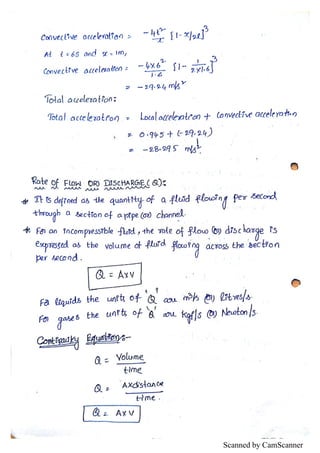 Convective acceleration = -4t² / x [1 - x/2l]³
At t = 6s and x = 1m,
Convective acceleration = -4×6² / 1.6 [1 - 1 / 2×1.6]³
= -29.24 m/s²
Total acceleration:
Total acceleration = Local acceleration + Convective acceleration
= 0.945 + (-29.24)
= -28.295 m/s².
Rate of Flow (OR) DISCHARGE (Q):
* It is defined as the quantity of a fluid flowing per second
through a section of a pipe (or) channel.
* For an incompressible fluid, the rate of flow (or) discharge is
expressed as the volume of fluid flowing across the section
per second.
Q = A×V
For liquids the units of 'Q' are m³/s (or) litres/s.
For gases the units of 'Q' are kgf/s (or) Newton/s.
Continuity Equations:-
Q = Volume / time
Q = A×distance / time.
Q = A×V
Scanned by CamScanner